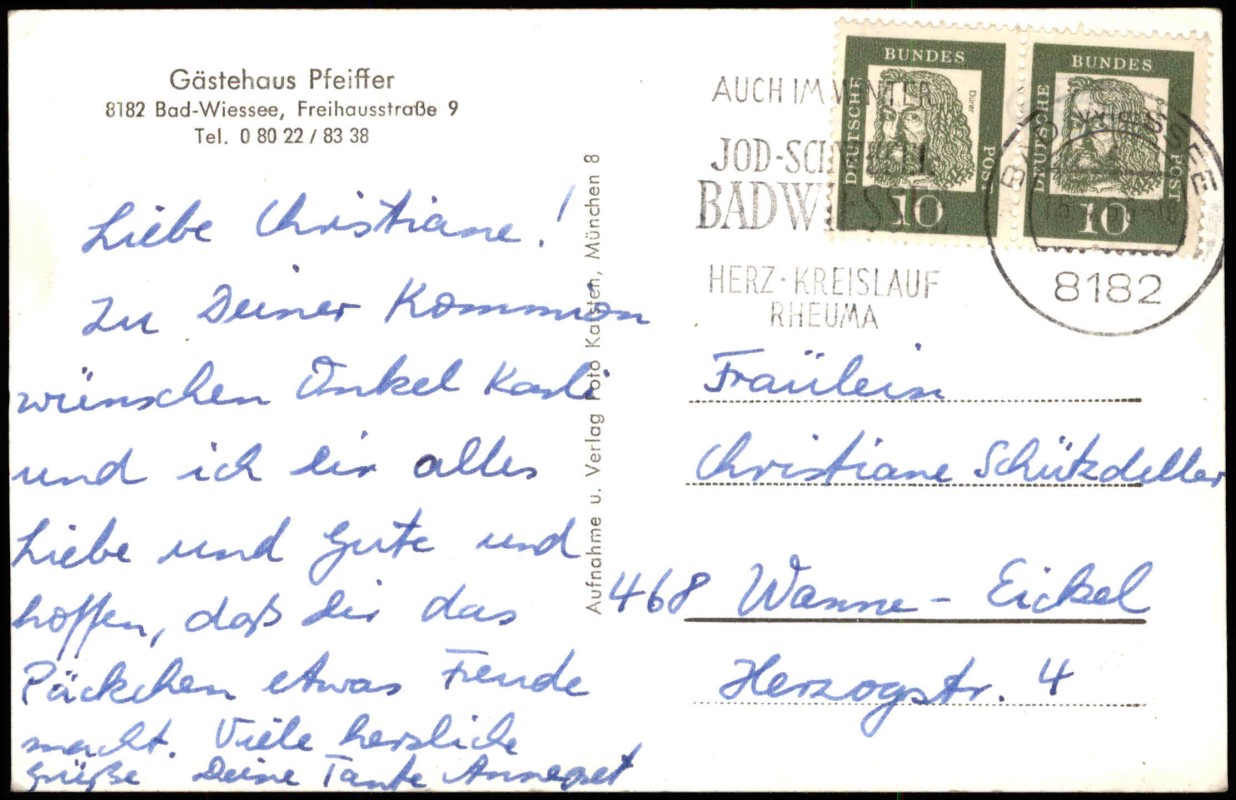 Gästehaus Pfeiffer
8182 Bad-Wiessee, Freihausstraße 9
Tel. 0 80 22 / 83 38
Liebe Christiane!
Zu Deiner Kommion
wünschen Onkel Karli
und ich dir alles
Liebe und Gute und
hoffen, daß dir das
Päckchen etwas Freude
macht. Viele herzliche
Grüße Deine Tante Annegret
Aufnahme u. Verlag Foto Karsten, München 8
AUCH IM WINTER
JOD-SCHWEFEL
BAD WIESSEE
HERZ·KREISLAUF
RHEUMA
DEUTSCHE BUNDES POST
Dürer
10
DEUTSCHE BUNDES POST
10
BAD WIESSEE
8182
Fräulein
Christiane Schützdeller
468 Wanne-Eickel
Herzogstr. 4